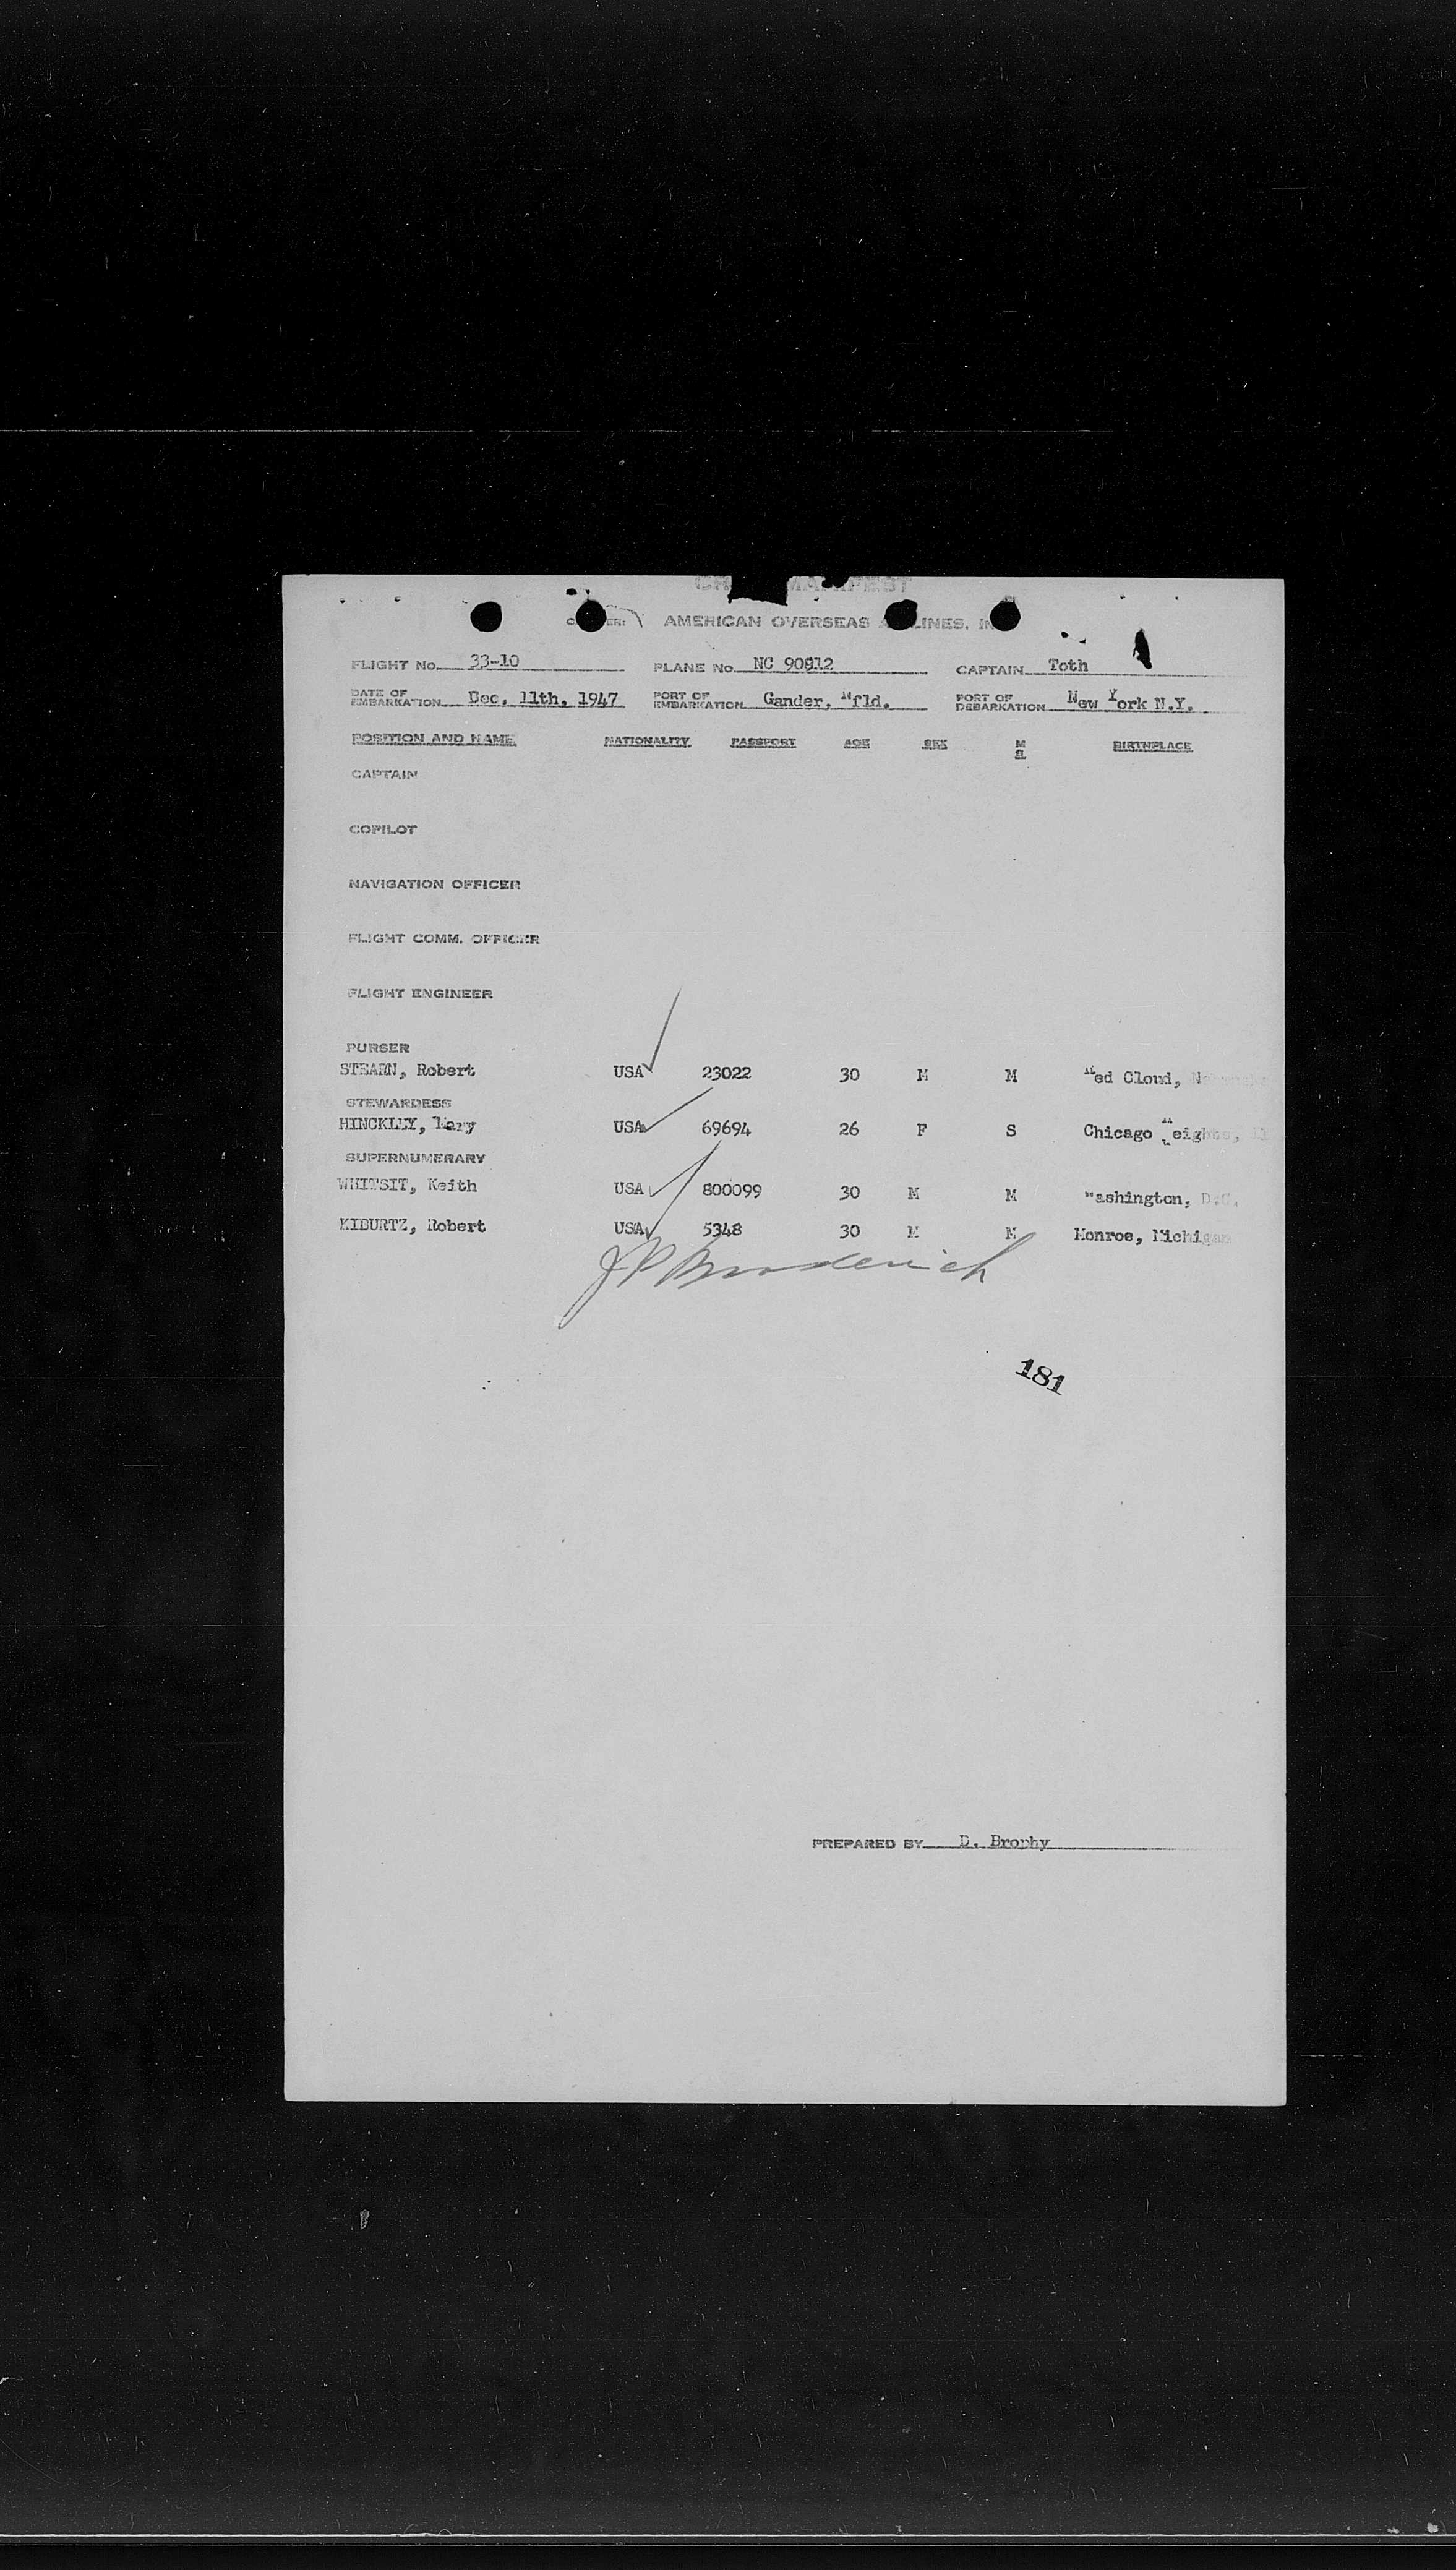 AMERICAN OVERSEAS
FLIGHT No. 33-10 PLANE No. NC 90812 CAPTAIN Toth
DATE OF EMBARKATION Dec. 11th, 1947 PORT OF EMBARKATION Gander, Nfld. PORT OF DEBARKATION New York N.Y.
POSITION AND NAME NATIONALITY PASSPORT AGE SEX M S BIRTHPLACE
CAPTAIN
COPILOT
NAVIGATION OFFICER
FLIGHT COMM. OFFICER
FLIGHT ENGINEER
PURSER
STEARN, Robert USA 23022 30 M M Red Cloud,
STEWARDESS
HINCKLEY, Mary USA 69694 26 F S Chicago Heights,
SUPERNUMERARY
WHITSIT, Keith USA 800099 30 M M Washington, D.C.
KIBURTZ, Robert USA 5348 30 M M Monroe, Michigan
J P Broderick
181
PREPARED BY D. Brophy